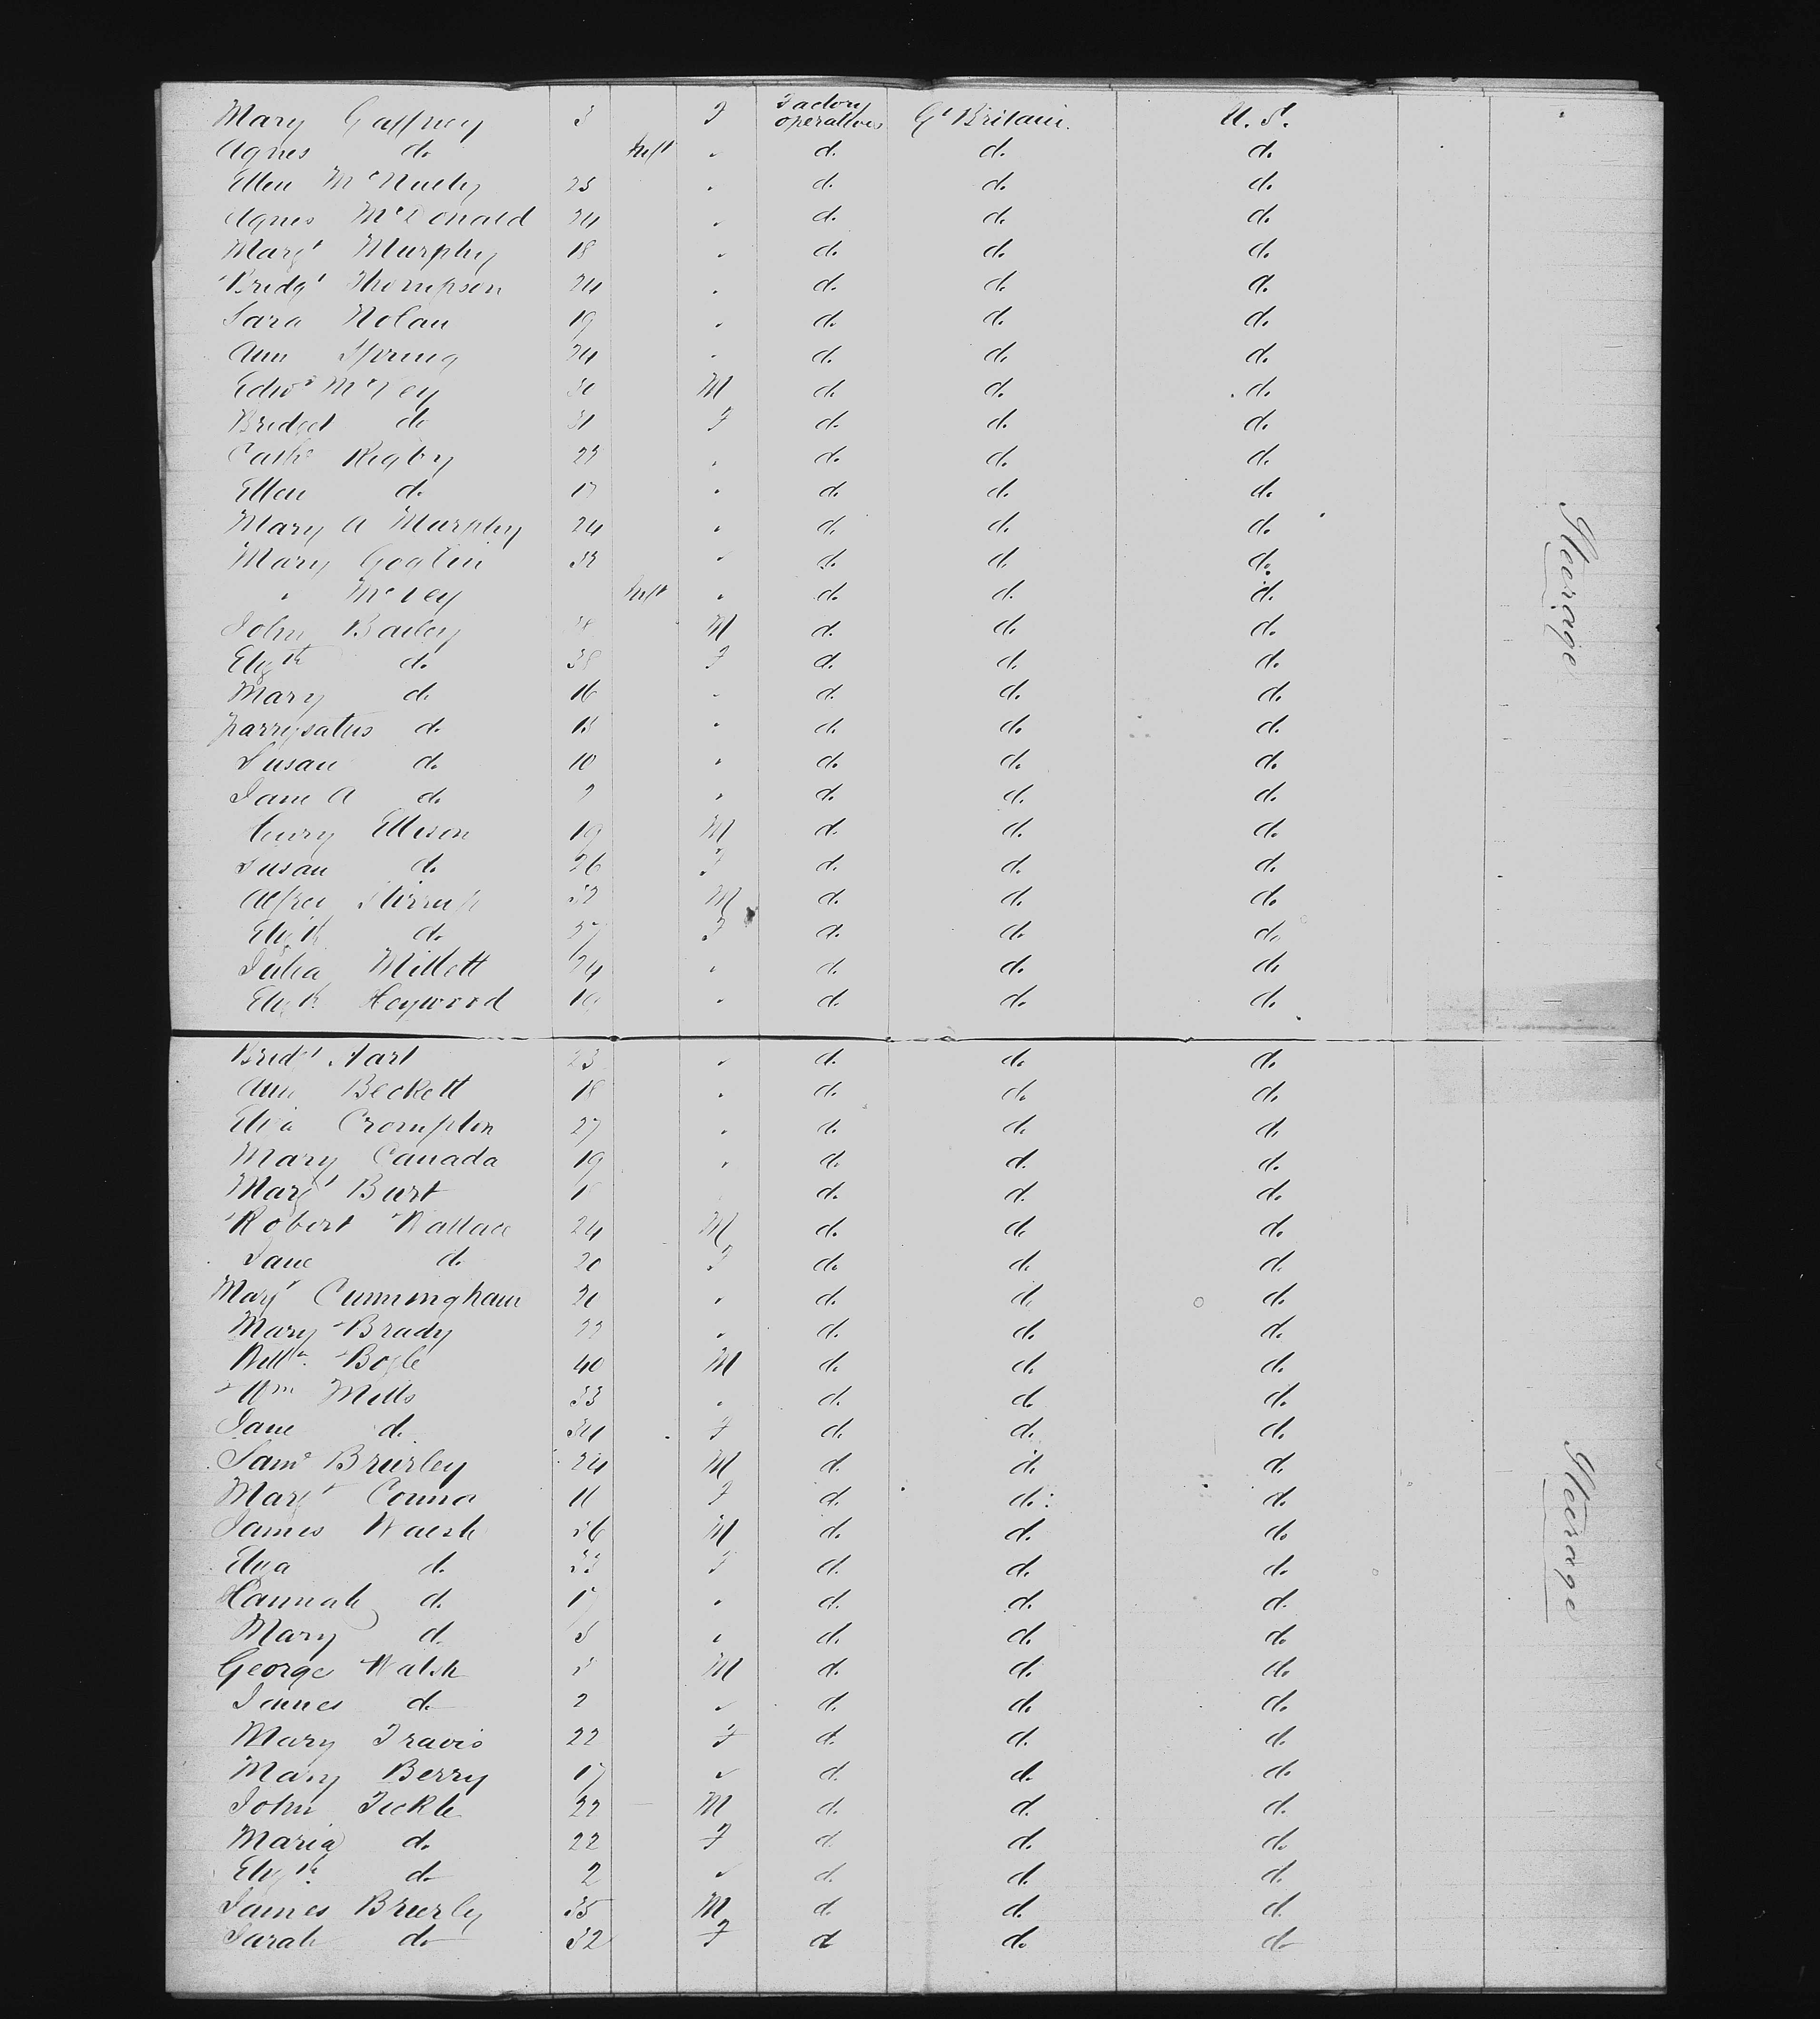 Mary Gaffney 3 F Factory operatives Gt Britain. U. S.
Agnes do Inft " do do do
Ellen McNulty 25 " do do do
Agnes McDonald 24 " do do do
Margt Murphy 18 " do do do
Bridgt Thompson 24 " do do do
Sara Nolan 19 " do do do
Ann Spring 24 " do do do
Edwd McVey 30 M do do do
Bridget do 31 F do do do
Cathe Rigby 22 " do do do
Ellen do 17 " do do do
Mary A Murphy 24 " do do do
Mary 33 " do do do
" McVey Inft " do do do
John Bailey 38 M do do do
Elizth do 38 F do do do
Mary do 16 " do do do
Parrysatus do 18 " do do do
Susan do 10 " do do do
Jane A do 7 " do do do
Henry Ellison 19 M do do do
Susan do 26 F do do do
Alfred Stirrup 32 M do do do
Elizth do 37 F do do do
Julia Millett 24 " do do do
Elizth Heywood 19 " do do do
Bridgt Hart 23 " do do do
Ann Beckett 18 " do do do
Eliza Crompton 27 " do do do
Mary Canada 19 " do do do
Margt Burt do do do
Robert Wallace 24 M do do do
Jane do 20 F do do do
Margt Cunningham 20 " do do do
Mary Brady 22 " do do do
Willm Bogle 40 M do do do
Wm Mills 33 " do do do
Jane do 34 F do do do
Saml Brierley 24 M do do do
Margt Connor 11 F do do do
James Walsh 36 M do do do
Eliza do 33 F do do do
Hannah do 17 " do do do
Mary do 5 " do do do
George Walsh 3 M do do do
James do 2 " do do do
Mary Travis 22 F do do do
Mary Berry 17 " do do do
John Tickle 22 M do do do
Maria do 22 F do do do
Elizth do 2 " do do do
James Brierly 35 M do do do
Sarah do 32 F do do do
Steerage
Steerage